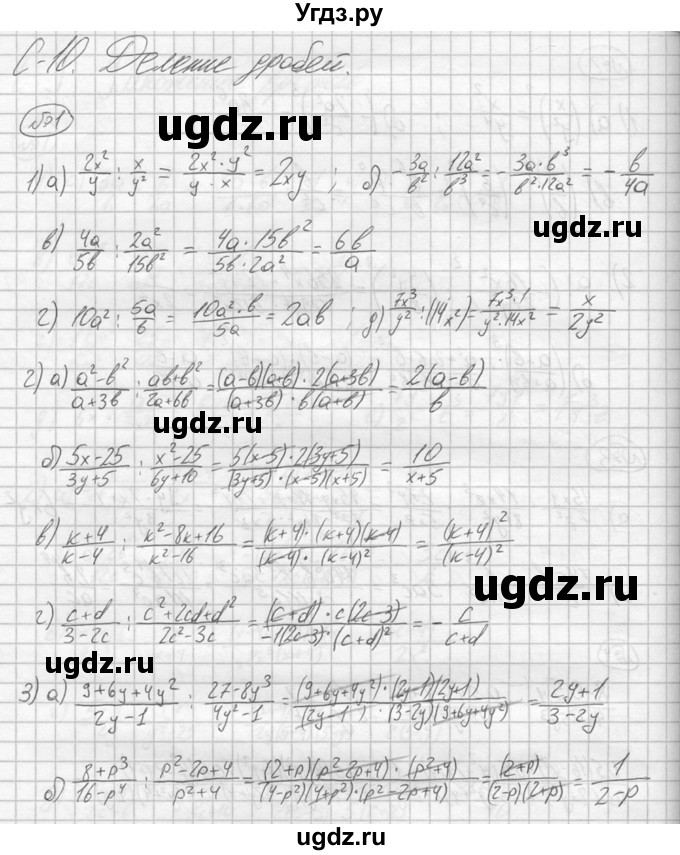 Угдз.ру
С-10. Деление дробей.
№71
ugdz.ru
1) а) 2x²/y : x/y² = 2x²·y²/y·x = 2xy ; б) -3a/b² : 12a²/b³ = -3a·b³/b²·12a² = -b/4a
в) 4a/5b : 2a²/15b² = 4a·15b²/5b·2a² = 6b/a
ugdz.ru
г) 10a² : 5a/b = 10a²·b/5a = 2ab ; д) 7x³/y² : (14x²) = 7x³·1/y²·14x² = x/2y²
ugdz.ru
2) а) a²-b²/a+3b : ab+b²/2a+6b = (a-b)(a+b)·2(a+3b)/(a+3b)·b(a+b) = 2(a-b)/b
ugdz.ru
б) 5x-25/3y+5 : x²-25/6y+10 = 5(x-5)·2(3y+5)/(3y+5)·(x-5)(x+5) = 10/x+5
в) k+4/k-4 : k²-8k+16/k²-16 = (k+4)·(k+4)(k-4)/(k-4)·(k-4)² = (k+4)²/(k-4)²
ugdz.ru
г) c+d/3-2c : c²+2cd+d²/2c²-3c = (c+d)·c(2c-3)/-1(2c-3)·(c+d)² = -c/c+d
ugdz.ru
3) а) 9+6y+4y²/2y-1 : 27-8y³/4y²-1 = (9+6y+4y²)·(2y-1)(2y+1)/(2y-1)·(3-2y)(9+6y+4y²) = 2y+1/3-2y
ugdz.ru
б) 8+p³/16-p⁴ : p²-2p+4/p²+4 = (2+p)(p²-2p+4)·(p²+4)/(4-p²)(4+p²)·(p²-2p+4) = (2+p)/(2-p)(2+p) = 1/2-p
ugdz.ru